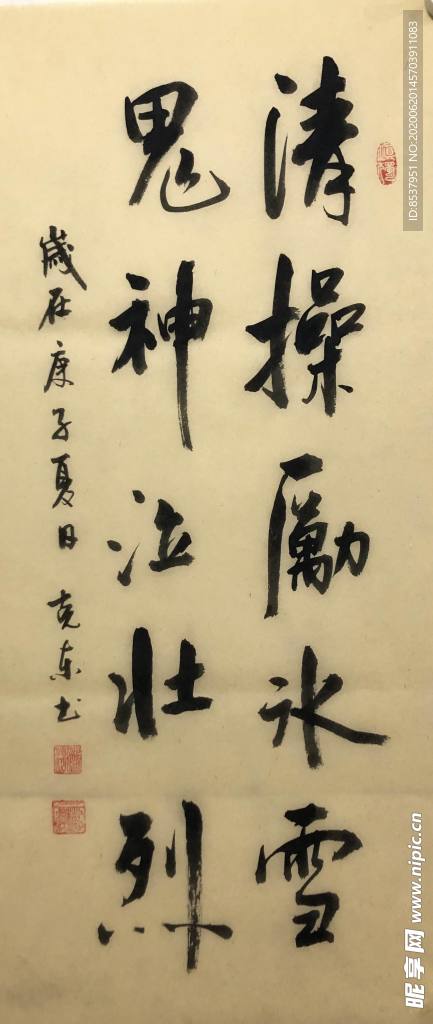 清操励冰雪
鬼神泣壮烈
歲在庚子夏日 克东书
ID:8537951 NO:20200620145703911083
昵享网 www.nipic.cn